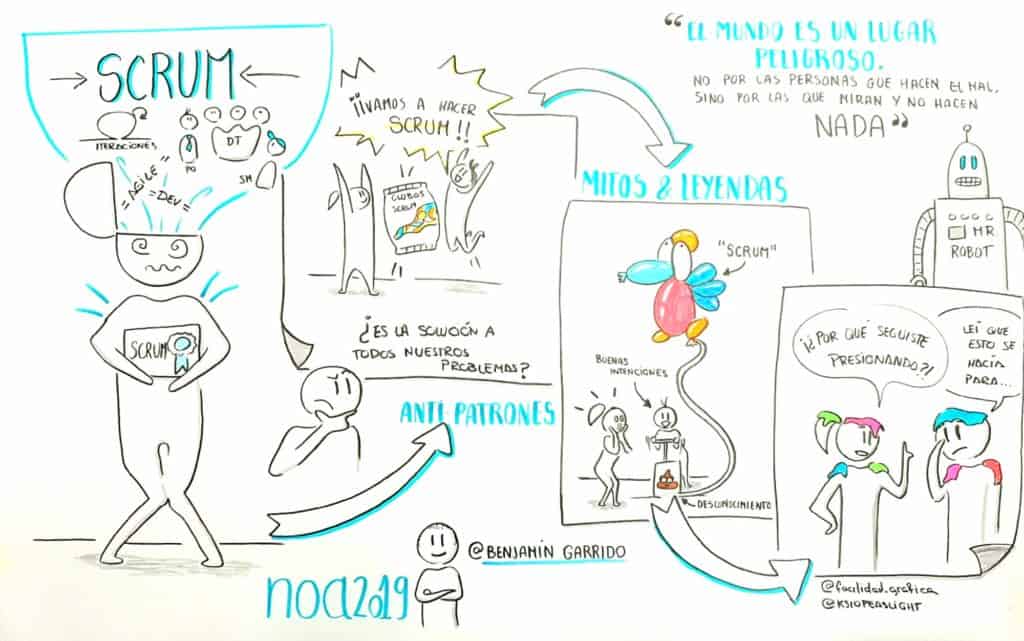 SCRUM
ITERACIONES
PO
DT
SM
"AGILE"
"DEV"
SCRUM
¡¡VAMOS A HACER
SCRUM!!
GLOBOS
SCRUM
¿ES LA SOLUCIÓN A
TODOS NUESTROS
PROBLEMAS?
ANTI PATRONES
"EL MUNDO ES UN LUGAR
PELIGROSO.
NO POR LAS PERSONAS QUE HACEN EL MAL,
SINO POR LAS QUE MIRAN Y NO HACEN
NADA"
MITOS & LEYENDAS
"SCRUM"
BUENAS
INTENCIONES
DESCONOCIMIENTO
MR.
ROBOT
¡¿POR QUÉ SEGUISTE
PRESIONANDO?!
LEÍ QUE
ESTO SE
HACÍA
PARA...
noa2019
@BENJAMÍN GARRIDO
@facilidad.grafica
@KSIOPEASLIGHT